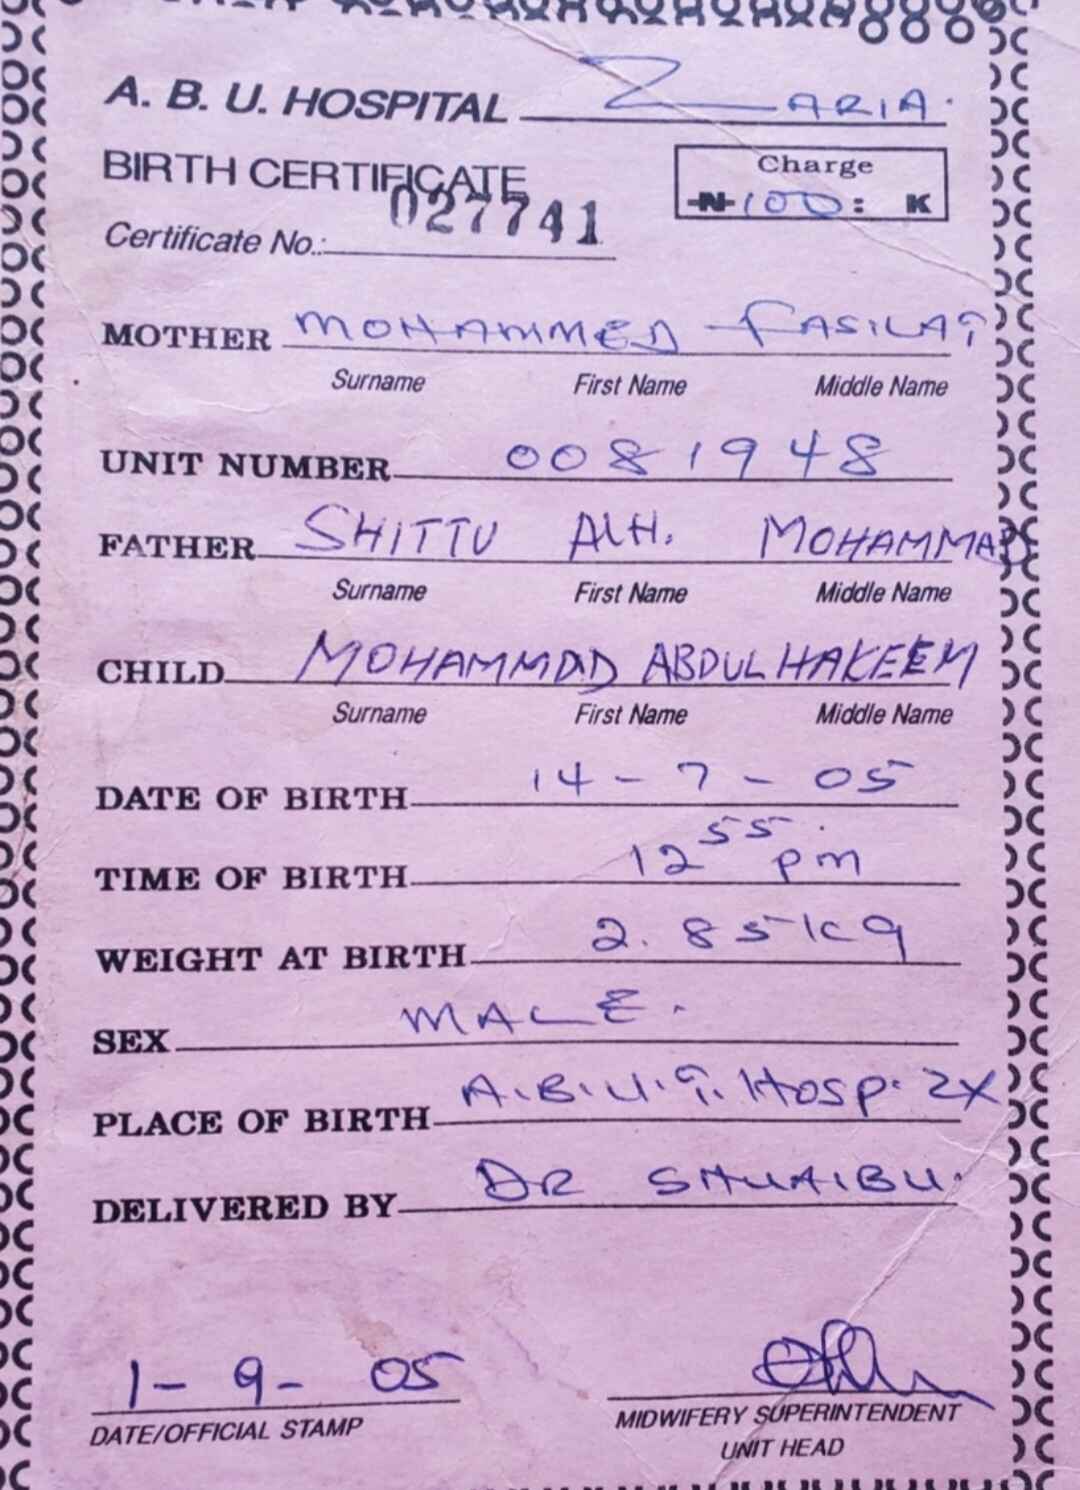 A. B. U. HOSPITAL ZARIA.
BIRTH CERTIFICATE
Charge
N 100: K
Certificate No.: 027741
MOTHER MOHAMMED FASILAT
Surname First Name Middle Name
UNIT NUMBER 0081948
FATHER SHITTU ALH. MOHAMMAD
Surname First Name Middle Name
CHILD MOHAMMAD ABDULHAKEEM
Surname First Name Middle Name
DATE OF BIRTH 14 - 7 - 05
TIME OF BIRTH 12 55 pm
WEIGHT AT BIRTH 2.85kg
SEX MALE.
PLACE OF BIRTH A.B.U.T. Hosp. ZX
DELIVERED BY DR SHUAIBU.
1 - 9 - 05
DATE/OFFICIAL STAMP
MIDWIFERY SUPERINTENDENT
UNIT HEAD